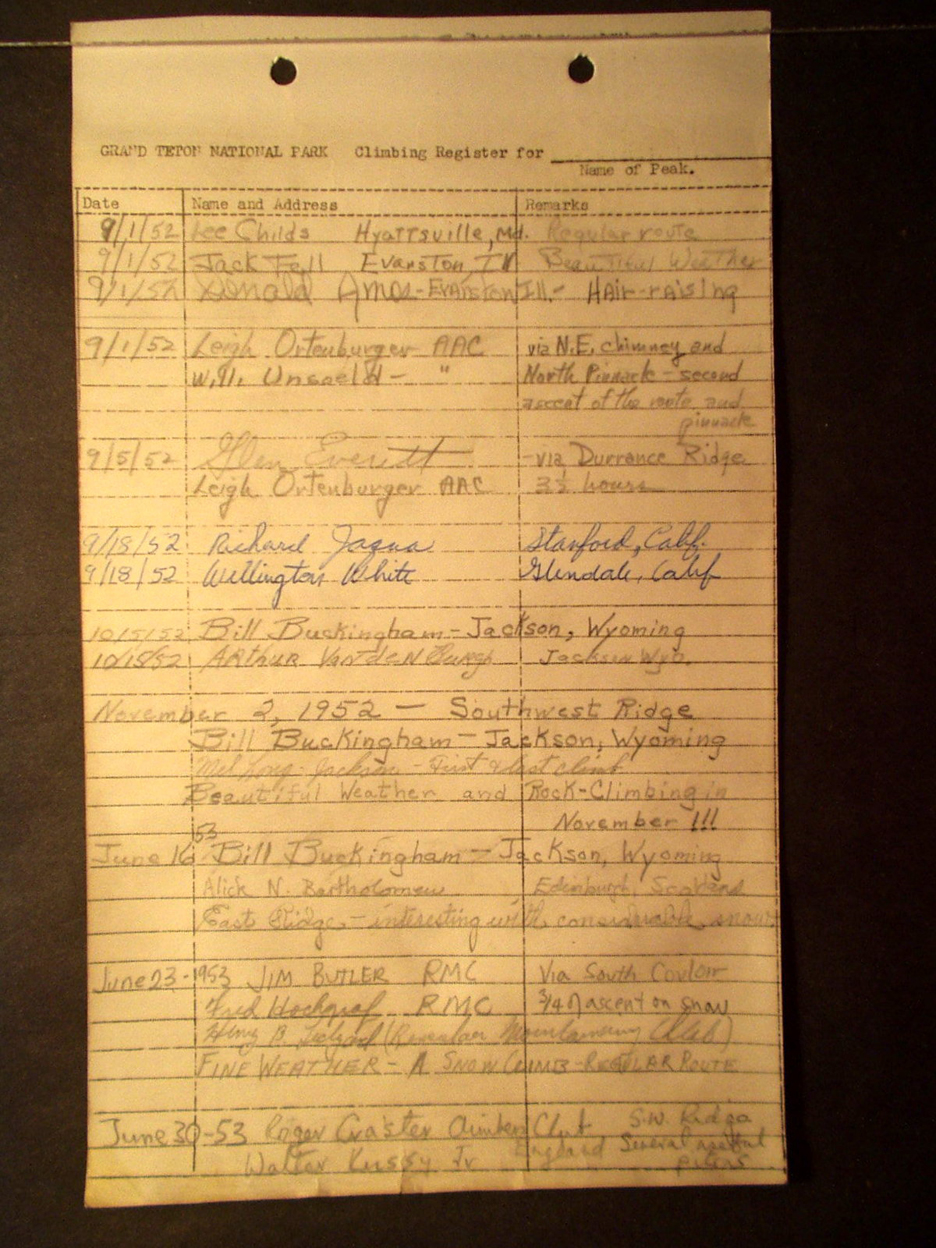 GRAND TETON NATIONAL PARK Climbing Register for
Name of Peak.
Date Name and Address Remarks
9/1/52 Lee Childs Hyattsville, Md. Regular route
9/1/52 Jack Fell Evanston, Ill Beautiful Weather
9/1/52 Donald Amos - Evanston Ill. - Hair-raising
9/1/52 Leigh Ortenburger AAC via N.E. chimney and
W.H. Unsoeld - " North Pinnacle - second
ascent of the route and
pinnacle
9/5/52 Glen Everett - via Durrance Ridge
Leigh Ortenburger AAC 3½ hours
9/18/52 Richard Stanford, Calif.
9/18/52 Wellington White Glendale, Calif
10/5/52 Bill Buckingham - Jackson, Wyoming
Arthur Van den Burgh Jackson Wyo.
November 2, 1952 - Southwest Ridge
Bill Buckingham - Jackson, Wyoming
Mel Long - Jackson - First & last climb
Beautiful Weather and Rock-Climbing in
November !!!
53
June 16 Bill Buckingham - Jackson, Wyoming
Alick N. Bartholomew Edinburgh, Scotland
East Ridge - interesting with considerable snow
June 23 - 1953 JIM BUTLER RMC Via South Couloir
Fred Hochgraf RMC 3/4 of ascent on snow
Mountaineering Club)
FINE WEATHER - A SNOW CLIMB - REGULAR ROUTE
June 30 - 53 Roger Craster Climbers Club S.W. Ridge
England Several
Walter Jr pitons